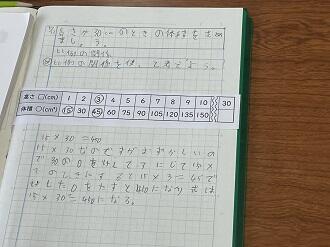 高さが30cmのときの体積をもとめ
ましょう。
比例の関係
比例の関係を使って考えよう。
高さ○(cm) 1 2 ③ 4 5 6 7 8 9 10 30
体積□(cm³) ⑮ 30 ㊺ 60 75 90 105 120 135 150
15×30=450
15×30なのですがむずかしいの
で30の0を
15×3=45で
した0をたすと450になり
15×30=450になる。